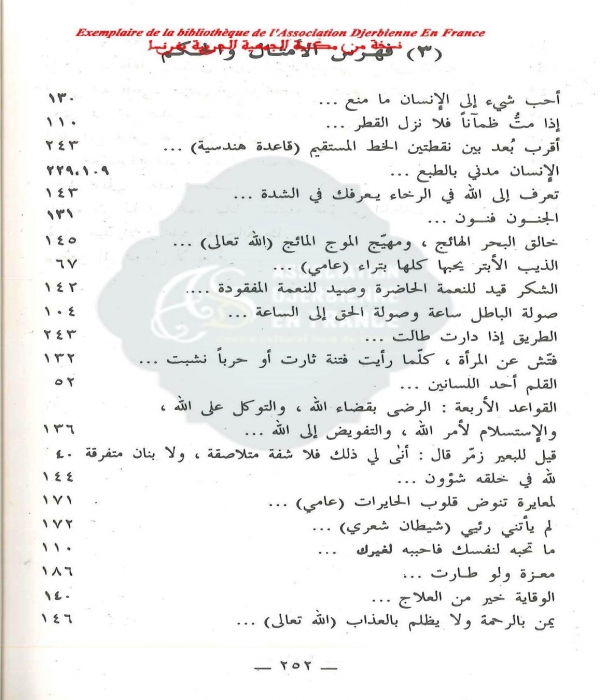 Exemplaire de la bibliothèque de l'Association Djerbienne En France
نسخة من مكتبة الجمعية الجربية بفرنسا
(٣) فهرس الأمثال والحكم
أحب شيء إلى الإنسان ما منع ... ١٣٠
إذا متُّ ظمآناً فلا نزل القطر ... ١١٠
أقرب بُعد بين نقطتين الخط المستقيم (قاعدة هندسية) ... ٢٤٣
الإنسان مدني بالطبع ... ٢٢٩،١٠٩
تعرف إلى الله في الرخاء يعرفك في الشدة ... ١٤٣
الجنون فنون ... ١٣١
خالق البحر الهائج ، ومهيّج الموج المائج (الله تعالى) ... ١٤٥
الذيب الأبتر يحبها كلها بتراء (عامي) ... ٦٧
الشكر قيد للنعمة الحاضرة وصيد للنعمة المفقودة .... ١٤٢
صولة الباطل ساعة وصولة الحق إلى الساعة ... ١٠٤
الطريق إذا دارت طالت ... ٢٤٣
فتّش عن المرأة ، كلّما رأيت فتنة ثارت أو حرباً نشبت ... ١٣٢
القلم أحد اللسانين ... ٥٢
القواعد الأربعة : الرضى بقضاء الله ، والتوكل على الله ،
والإستسلام لأمر الله ، والتفويض إلى الله ... ١٣٦
قيل للبعير زمّر قال : أنىٰ لي ذلك فلا شفة متلاصقة ، ولا بنان متفرقة ٤٠
لله في خلقه شؤون ... ١٤٤
لمعايرة تنوض قلوب الحايرات (عامي) ... ١٧١
لم يأتني رئيي (شيطان شعري) ... ١٧٢
ما تحبه لنفسك فاحببه لغيرك ... ١١٠
معزة ولو طارت ... ١٨٦
الوقاية خير من العلاج ... ١٤٠
يمن بالرحمة ولا يظلم بالعذاب (الله تعالى) ... ١٤٦
— ٢٥٢ —
ASSOCIATION
DJERBIENNE
EN FRANCE